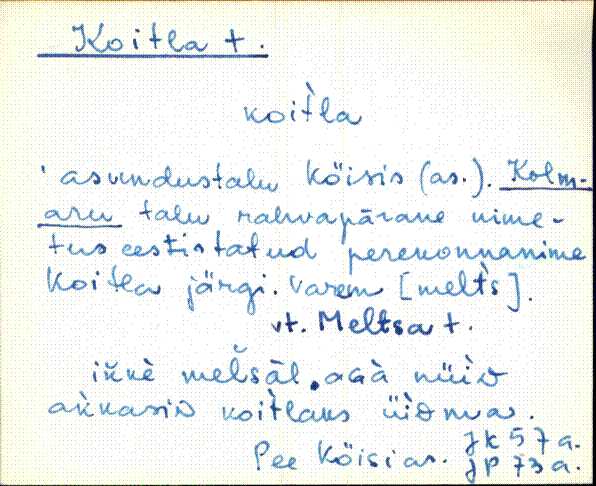 Koitla t.
koit̀la
asundustalu Köisis (as.). Kolm-
aru talu rahvapärane nime-
tus eestistatud perekonnanime
Koitla järgi. Varem [mel̀ts].
vt. Meltsa t.
meľsäl, agà nüid
akkasiD koit̀laks üidma.
Pee Köisi as. JK 57 a.
JP 73 a.